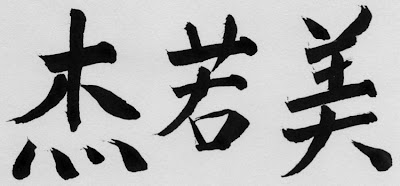 杰若美